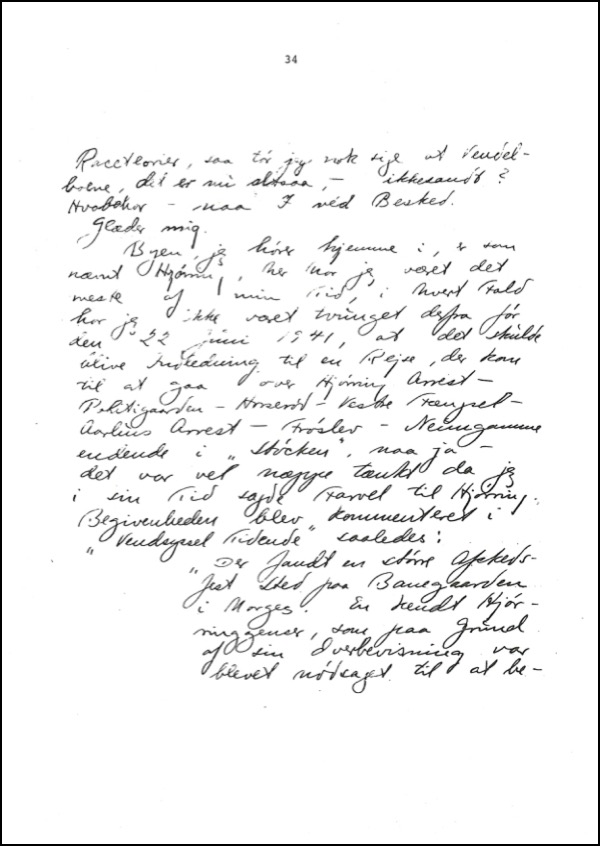 34
Raceteorier, saa tør jeg nok sige at Vendel-
boerne, det er nu altsaa, - ikkesandt?
Hvabehar - naa I véd Besked.
Glæder mig.
Byen, jeg hører hjemme i, er som
nævnt Hjørring, her har jeg været det
meste af min Tid, i hvert Fald
har jeg ikke været tvunget derfra før
den 22 juni 1941, at det skulde
blive Indledning til en Rejse, der kom
til at gaa over Hjørring Arrest -
Politigaarden - Horserød - Vestre Fængsel -
Aarhus Arrest - Frøslev - Neuengamme
endende i "Stöcken", naa ja -
det var vel næppe tænkt da jeg
i sin Tid sagde Farvel til Hjørring.
Begivenheden blev kommenteret i
"Vendsyssel Tidende" saaledes:
"Der fandt en større Afskeds-
fest Sted paa Banegaarden
i Morges. En kendt Hjør-
ringgenser, som paa Grund
af sin Overbevisning var
blevet nødsaget til at be-